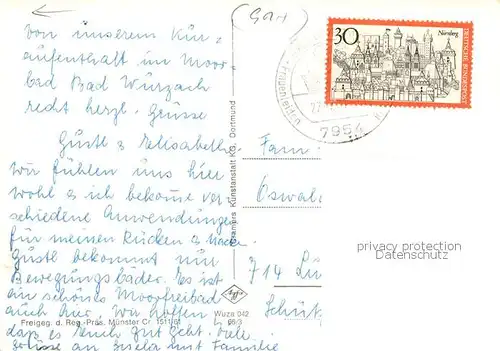 (Gar)
von unserem Kur=
aufenthalt im Moor
bad Bad Wurzach
recht herzl. Grüsse
Gustl & Elisabeth
Wir fühlen uns hier
wohl & ich bekomme ver
schiedene Anwendungen
für meinen Rücken & Nacken.
Gustl bekommt nur
Bewegungsbäder. Es ist
ein schönes Moorfreibad
auch hier. Wir hoffen
dass es Euch gut geht. Viele
Grüsse an Gisela mit Familie
Freigeg. d. Reg.-Präs. Münster Cr. 1511/61
Cramers Kunstanstalt KG, Dortmund
Agfa
Wuza 042
66/3
30
Nürnberg
DEUTSCHE BUNDESPOST
27.
7954
Fam
Oswald
714 Lu
Schütz
privacy protection
Datenschutz